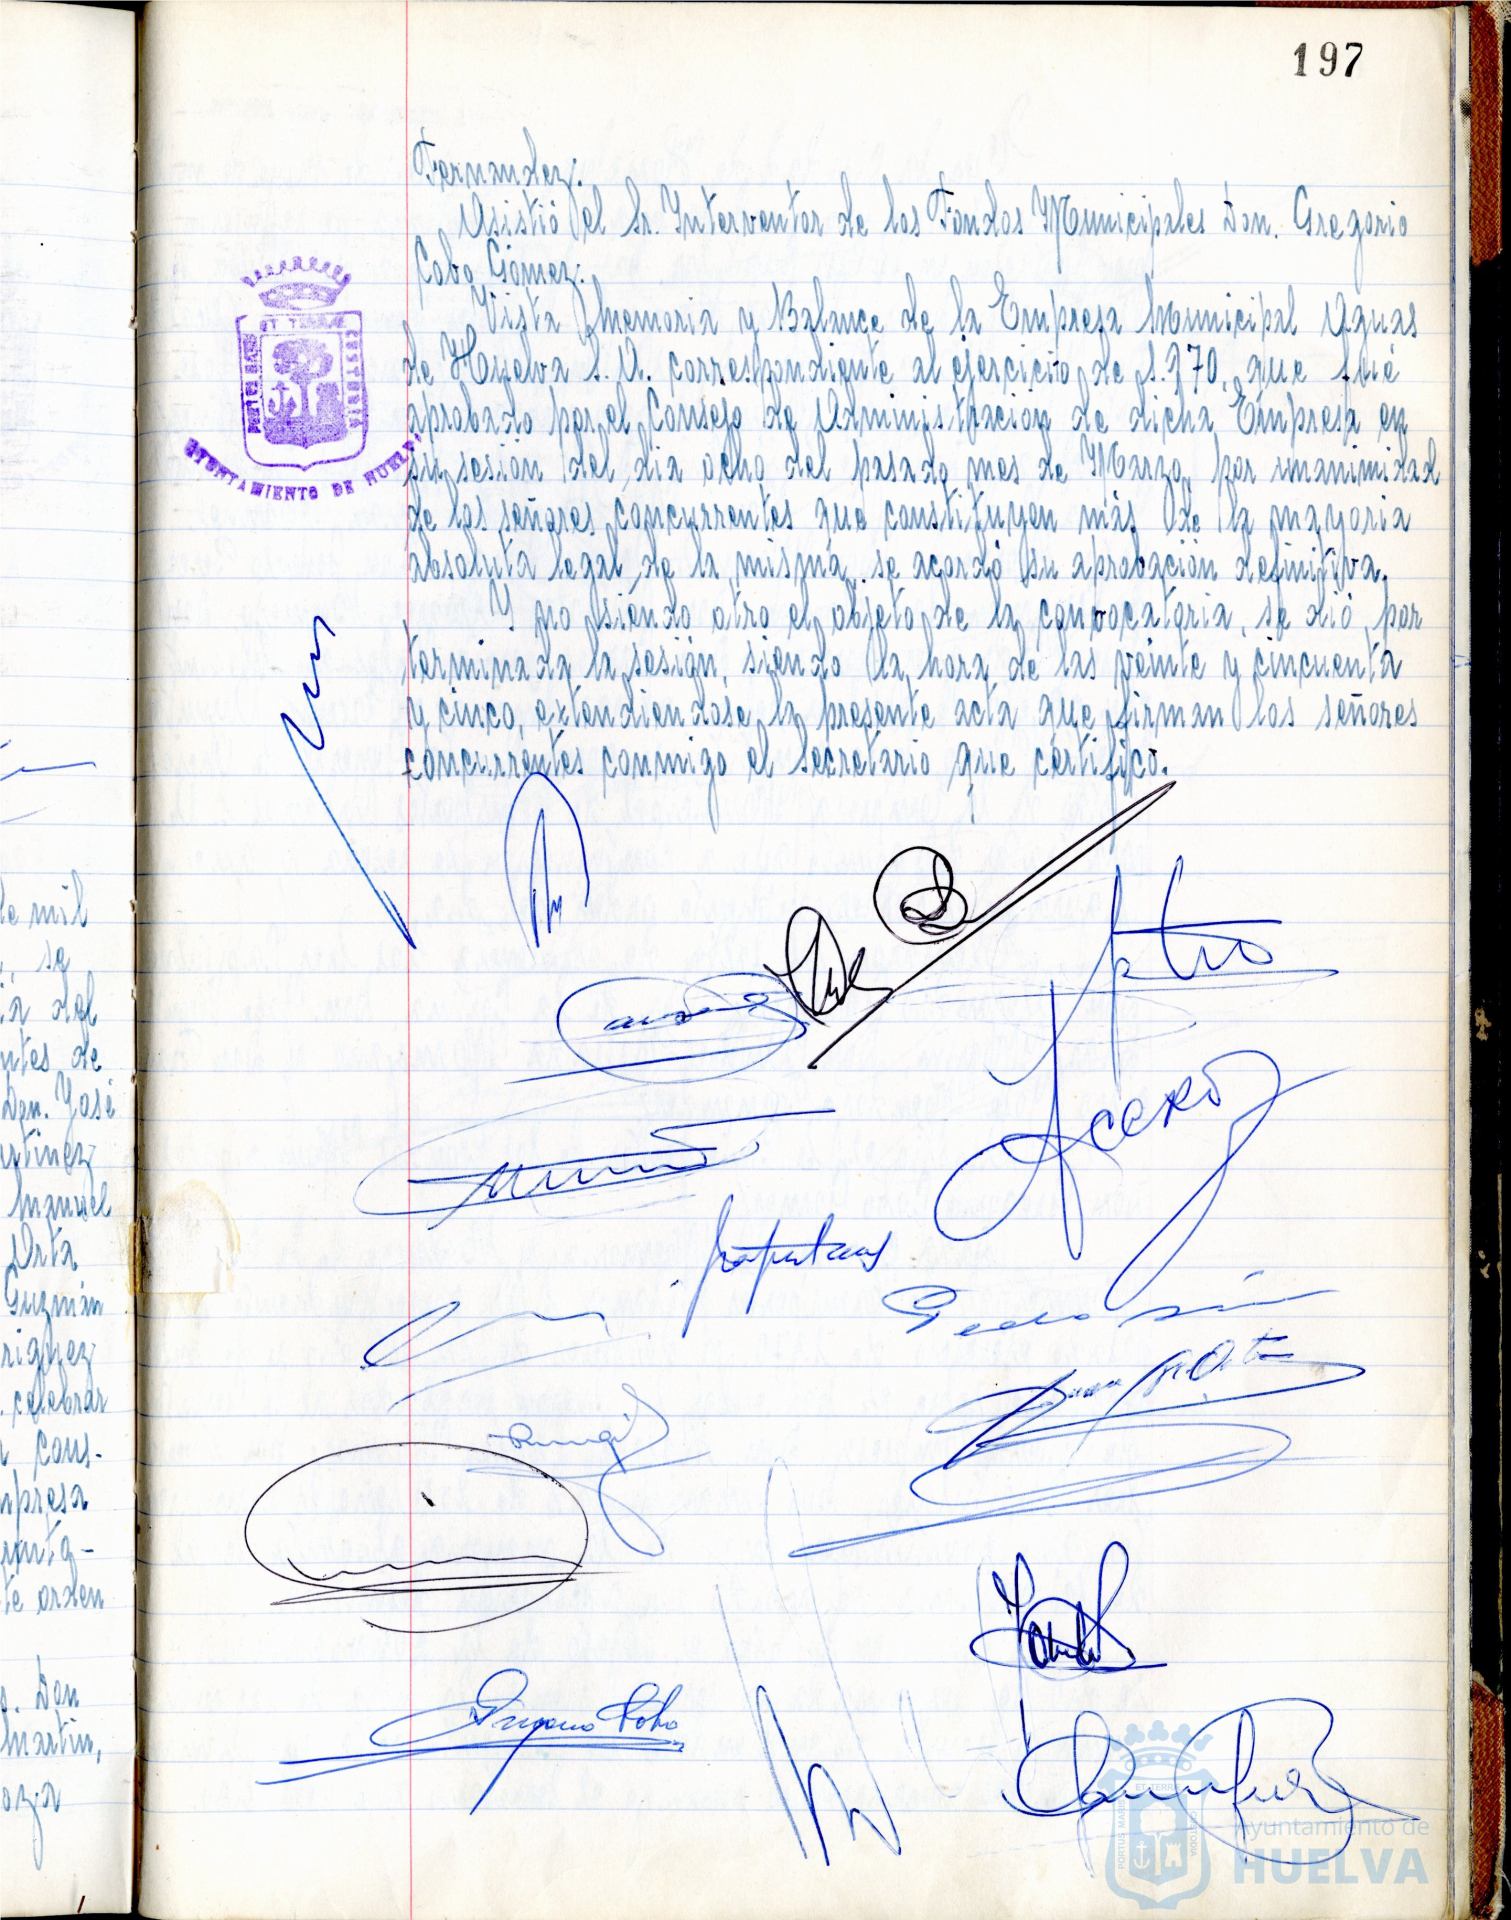 197
Fernandez.
Asistió el Sr. Interventor de los Fondos Municipales Don. Gregorio
Cobo Gómez.
Vista Memoria y Balance de la Empresa Municipal Aguas
de Huelva S.A. correspondiente al ejercicio de 1.970, que fué
aprobado por el Consejo de Administración de dicha Empresa en
su sesión del día ocho del pasado mes de Marzo, por unanimidad
de los señores concurrentes que constituyen más de la mayoria
absoluta legal de la misma, se acordó su aprobación definitiva.
Y no siendo otro el objeto de la convocatoria, se dió por
terminada la sesión, siendo la hora de las veinte y cincuenta
y cinco, extendiendose la presente acta que firman los señores
concurrentes conmigo el secretario que certifico.
PORTUS MARIS ET TERRAE CUSTODIA
AYUNTAMIENTO DE HUELVA
de mil
, se
ia del
ntes de
Don. José
artinez
Manuel
Orta
Guzmán
riguez
celebrar
cons-
mpresa
te orden
Don
Martin,
oza
Acero
Gregorio Cobo
PORTUS MARIS ET TERRAE CUSTODIA
Ayuntamiento de
HUELVA